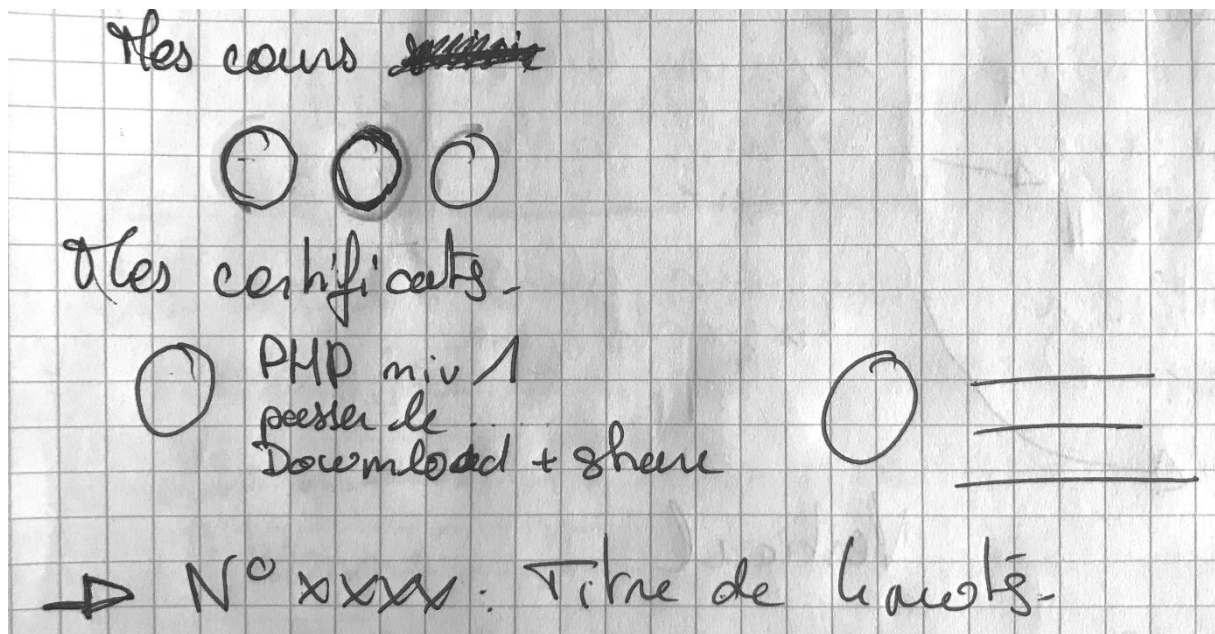 Mes cours
Mes certificats.
PHP niv 1
passer le .....
Download + share
N° xxxx : Titre de